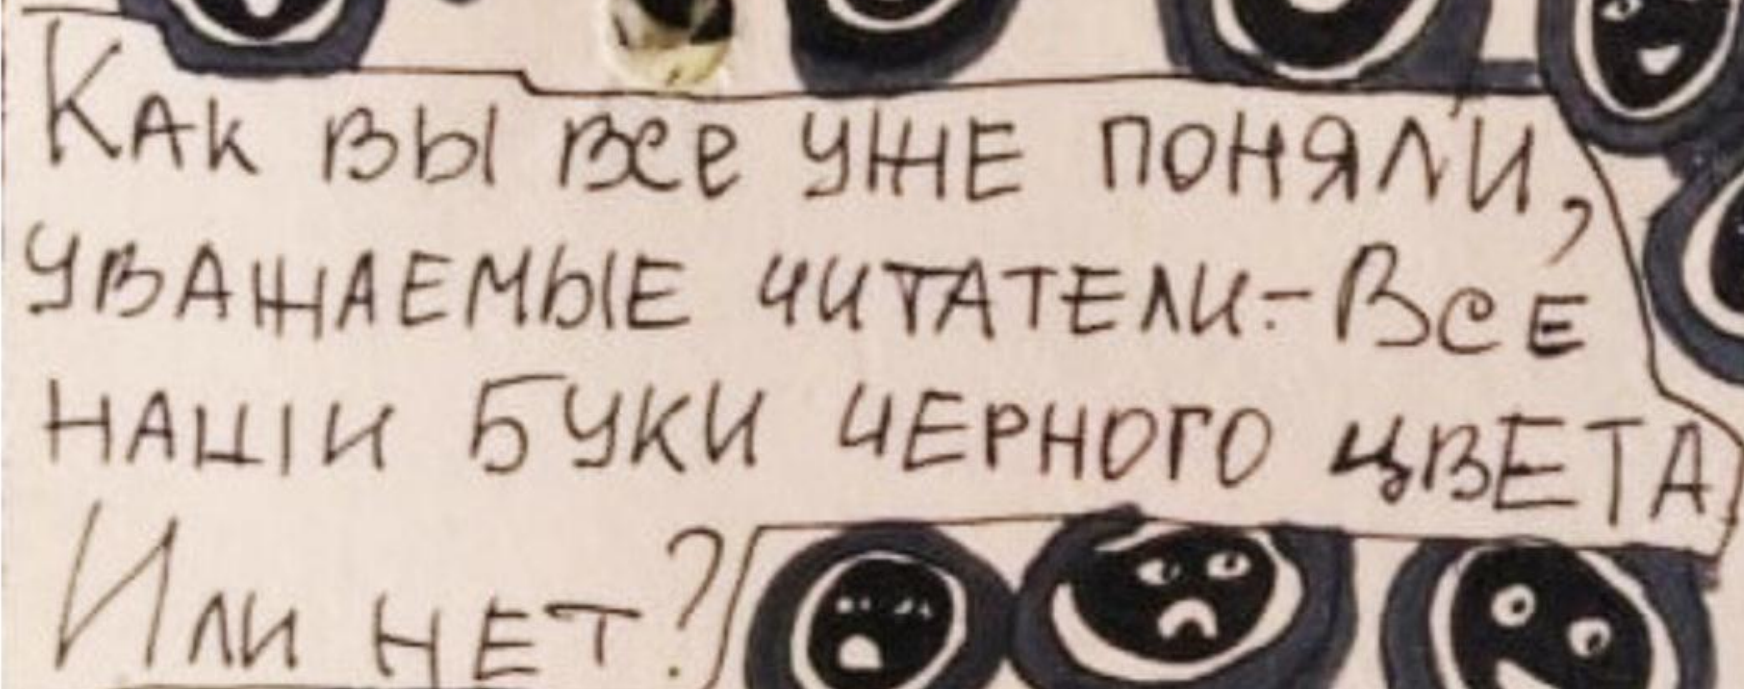 Как вы все уже поняли,
уважаемые читатели:-Все
наши Буки черного цвета
Или нет?